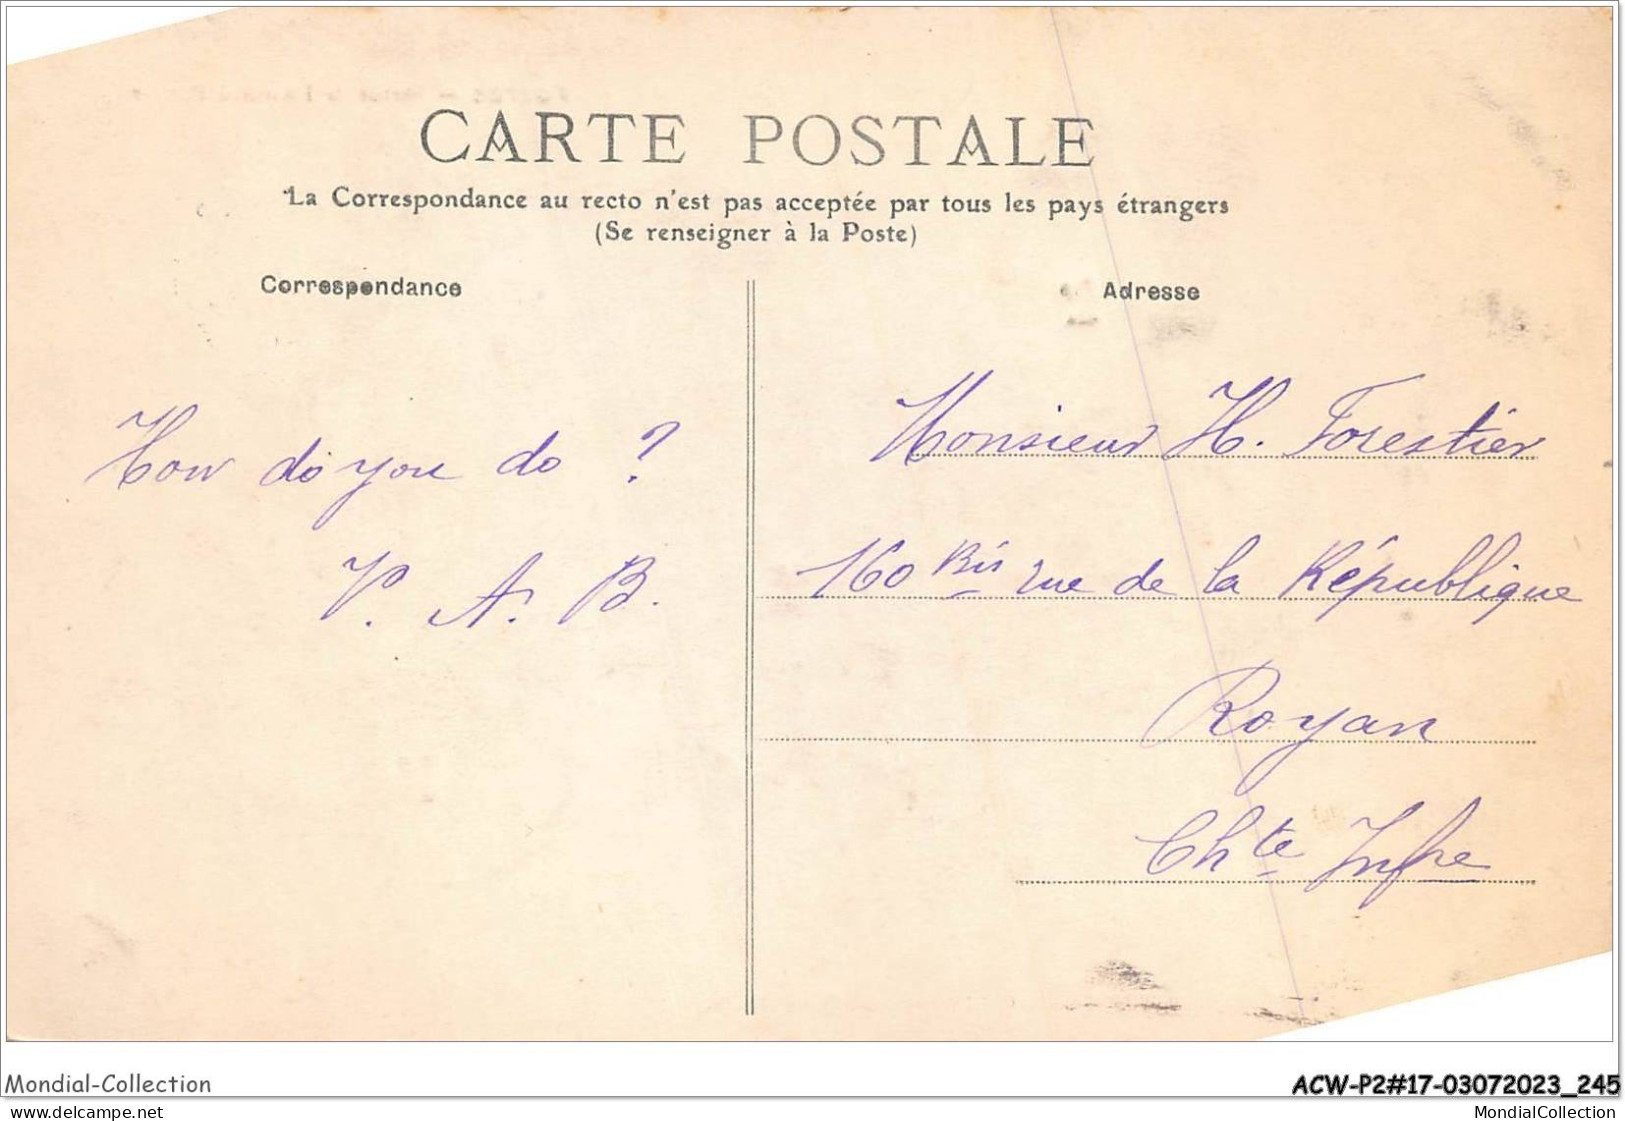 CARTE POSTALE
La Correspondance au recto n'est pas acceptée par tous les pays étrangers
(Se renseigner à la Poste)
Correspondance
Adresse
How do you do ?
V. A. B.
Monsieur H. Forestier
160 Bis rue de la République
Royan
Chte Infre
Mondial-Collection
ACW-P2#17-03072023_245
www.delcampe.net
MondialCollection